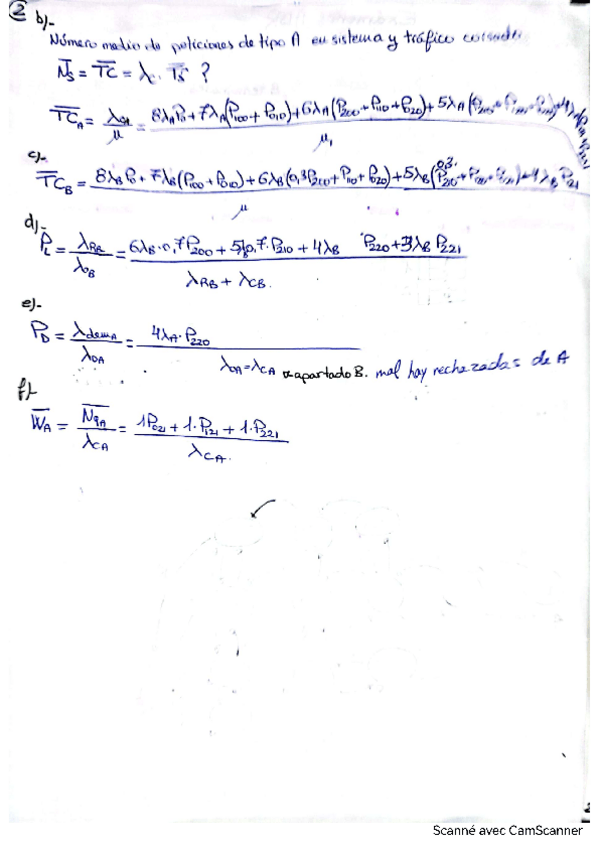 ② b)-
Número medio de peticiones de tipo A en sistema y tráfico cursado
N̄s = T̄C = λc · T̄s ?
T̄C_A = λcA/μ = (8λA P0 + 7λA(P100 + P010) + 6λA(P200 + P110 + P020) + 5λA(P210 +
μ1
c)-
T̄C_B = (8λB P0 + 7λB(P100 + P010) + 6λB(0,3P200 + P110 + P020) + 5λB(0,3 P210 + 4λB P121
μ
d)-
PL = λRB/λoB = (6λB·0,7P200 + 5λB0,7·P210 + 4λB P220 + 3λB P221)
λRB + λCB
e)-
PD = λdemA/λoA = 4λA·P220
λoA = λcA apartado B. mal hay rechazadas de A
f)-
W̄A = N̄qA/λcA = (1P021 + 1·P121 + 1·P221)
λcA.
Scanné avec CamScanner